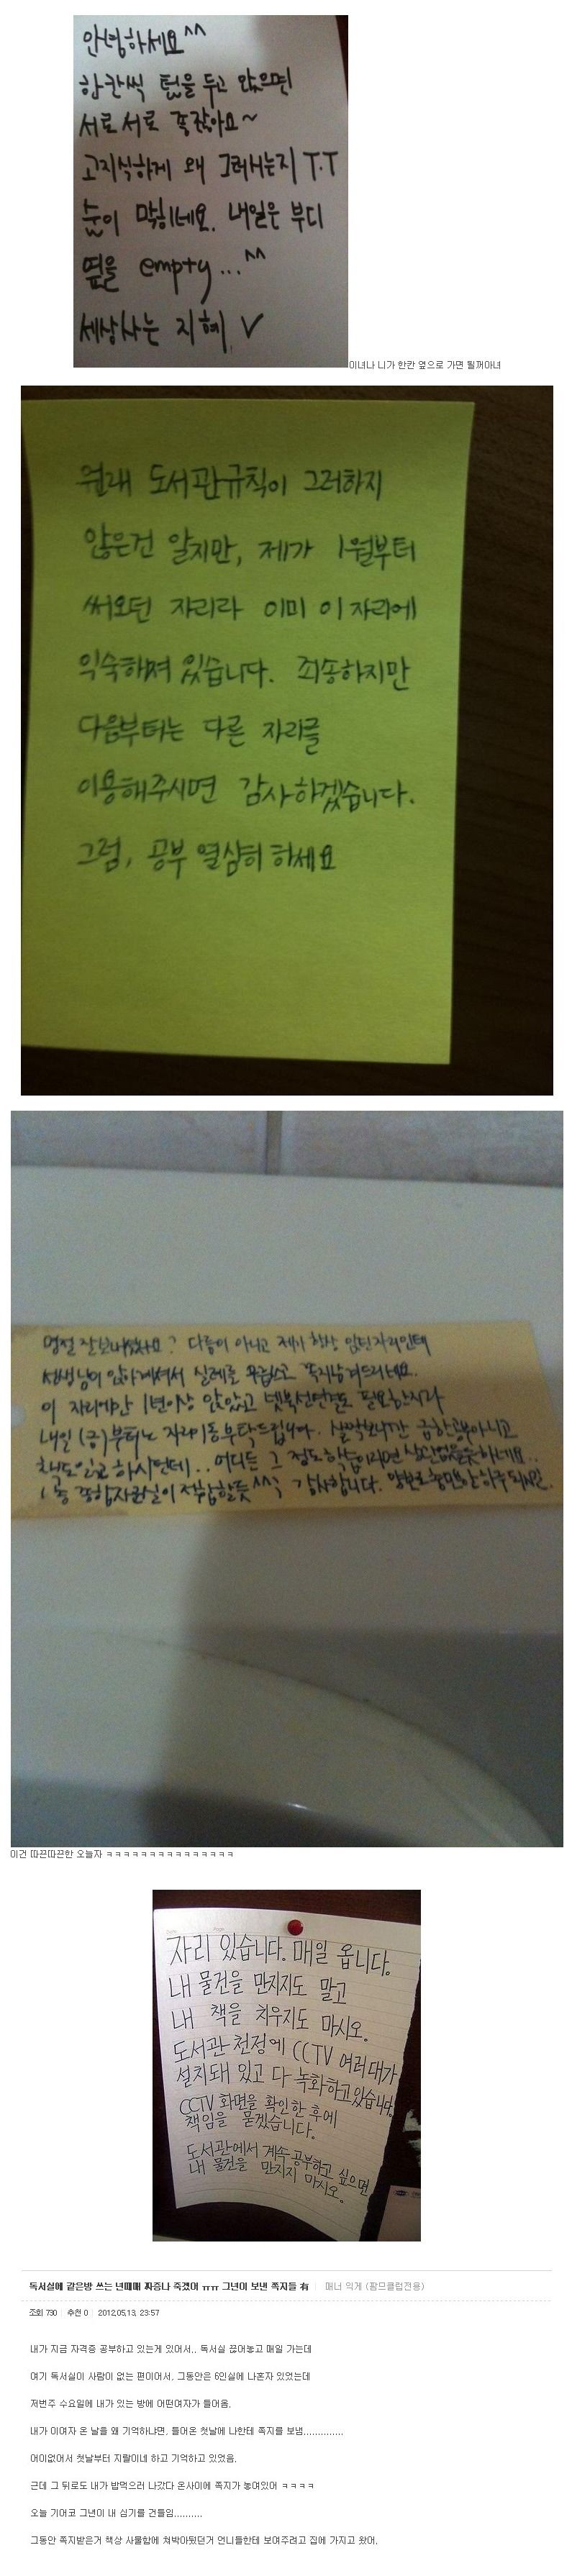 안녕하세요^^
한칸씩 텀을 두고 앉으면!
서로서로 좋잖아요~
고지식하게 왜 그러시는지 T.T
숨이 막히네요. 내일은 부디
옆을 empty...^^
세상사는 지혜! V
이녀나 니가 한칸 옆으로 가면 될꺼아녀
원래 도서관규칙이 그러하지
않은건 알지만, 제가 1월부터
써오던 자리라 이미 이 자리에
익숙하져 있습니다. 죄송하지만
다음부터는 다른 자리를
이용해주시면 감사하겠습니다.
그럼, 공부 열심히 하세요
명절 잘보내셨나요? 다름이 아니고 제가 항상 앉던자리인데
선생님이 앉아계셔서 실례를 무릅쓰고 쪽지남겨드리네요..
이 자리에만 1년이상 앉았고 넷북선연결도 필요한지라
내일(금)부터는 자리이동부탁드립니다. 살짝보니까 급한공부아니고
책도읽고 하시던데.. 어디든 그 정도학습이라면 상관없을듯하네요..
1층 종합자료실이 적합할듯^^; 감사합니다.
이건 따끈따끈한 오늘자 ㅋㅋㅋㅋㅋㅋㅋㅋㅋㅋㅋㅋㅋㅋㅋ
자리 있습니다. 매일 옵니다.
내 물건을 만지지도 말고
내 책을 치우지도 마시오.
도서관 천정에 CCTV 여러대가
설치돼 있고 다 녹화하고있습니다.
CCTV 화면을 확인한 후에
책임을 묻겠습니다.
도서관에서 계속 공부하고 싶으면
내 물건을 만지지 마시오.
독서실에 같은방 쓰는 년때매 짜증나 죽겠어 ㅠㅠ 그년이 보낸 쪽지들 有 매너 익게 (팜므클럽전용)
조회 730 추천 0 2012.05.13, 23:57
내가 지금 자격증 공부하고 있는게 있어서.. 독서실 끊어놓고 매일 가는데
여기 독서실이 사람이 없는 편이어서, 그동안은 6인실에 나혼자 있었는데
저번주 수요일에 내가 있는 방에 어떤여자가 들어옴.
내가 이여자 온 날을 왜 기억하냐면. 들어온 첫날에 나한테 쪽지를 보냄.............
어이없어서 첫날부터 지랄이네 하고 기억하고 있었음.
근데 그 뒤로도 내가 밥먹으러 나갔다 온사이에 쪽지가 놓여있어 ㅋㅋㅋㅋ
오늘 기어코 그년이 내 심기를 건들임..........
그동안 쪽지받은거 책상 사물함에 쳐박아뒀던거 언니들한테 보여주려고 집에 가지고 왔어.